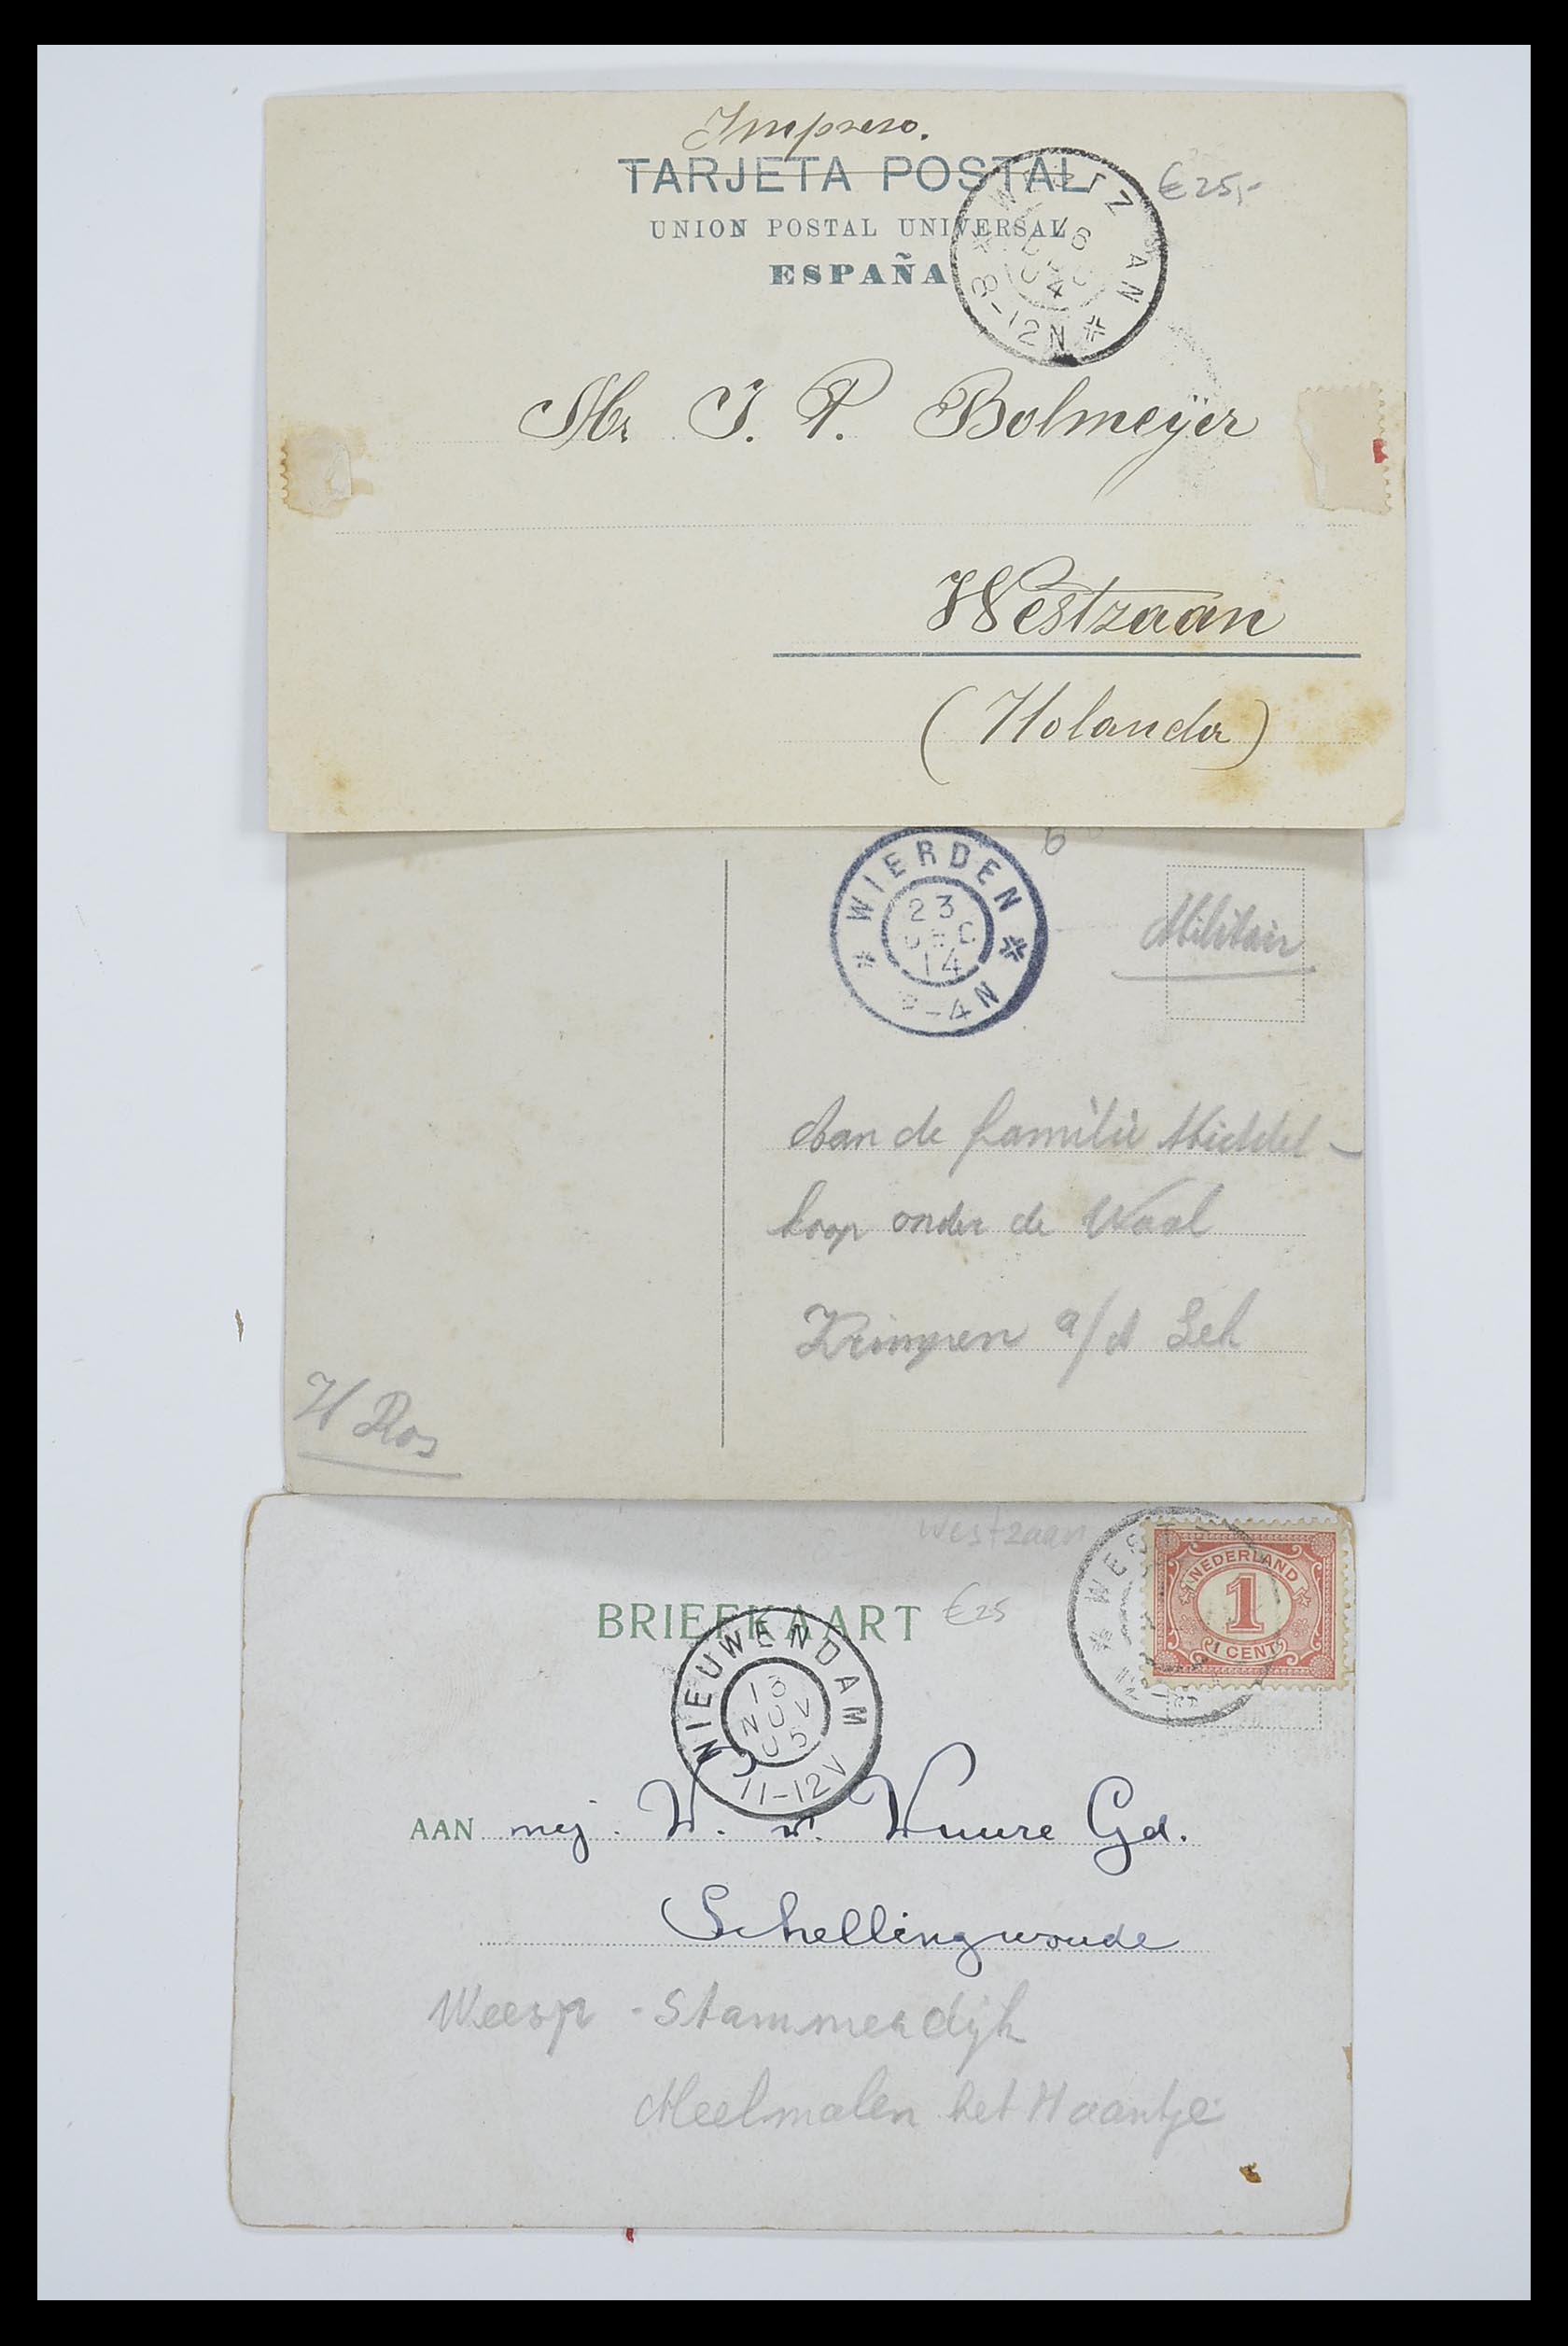 Impreso.
TARJETA POSTAL
€ 25,-
UNION POSTAL UNIVERSAL
ESPAÑA
WESTZAAN
16
04
8-12N
Mr J. P. Bolmeÿer
Westzaan
(Holanda)
6
WIERDEN
23
DEC
14
-4N
Militair
Aan de familie Middel-
koop onder de Waal
Krimpen a/d Lek
H Ros
Westzaan
WESTZ
NEDERLAND
1
1 CENT
BRIEFKAART
€ 25
NIEUWENDAM
13
NOV
05
11-12V
AAN mej. W. v. Vuure Gd.
Schellingwoude
Weesp - Stammerdijk
Meelmolen het Haantje